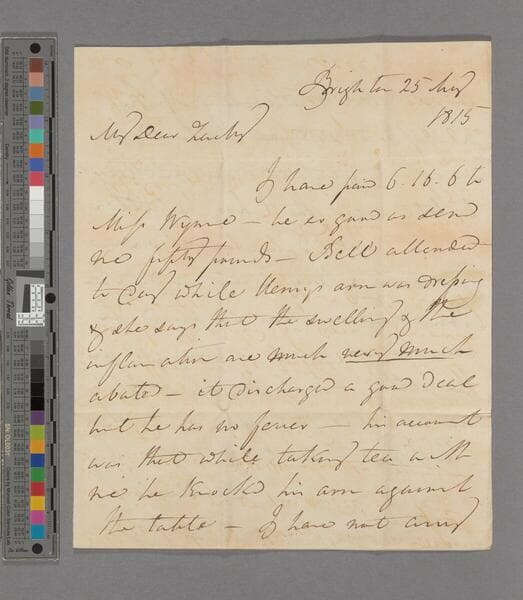 Brighton 25 Aug
1815
My Dear
I have paid 6.16.6 to
Miss Wynne – be so good as send
me fifty pounds – Bell attended
to day while Henrys arm was dressing
& she says that the swelling & the
inflamation are much very much
abated – it discharged a good deal
but he has no fever – his account
was that while taking tea with
me he knocked his arm against
the table – I have not any